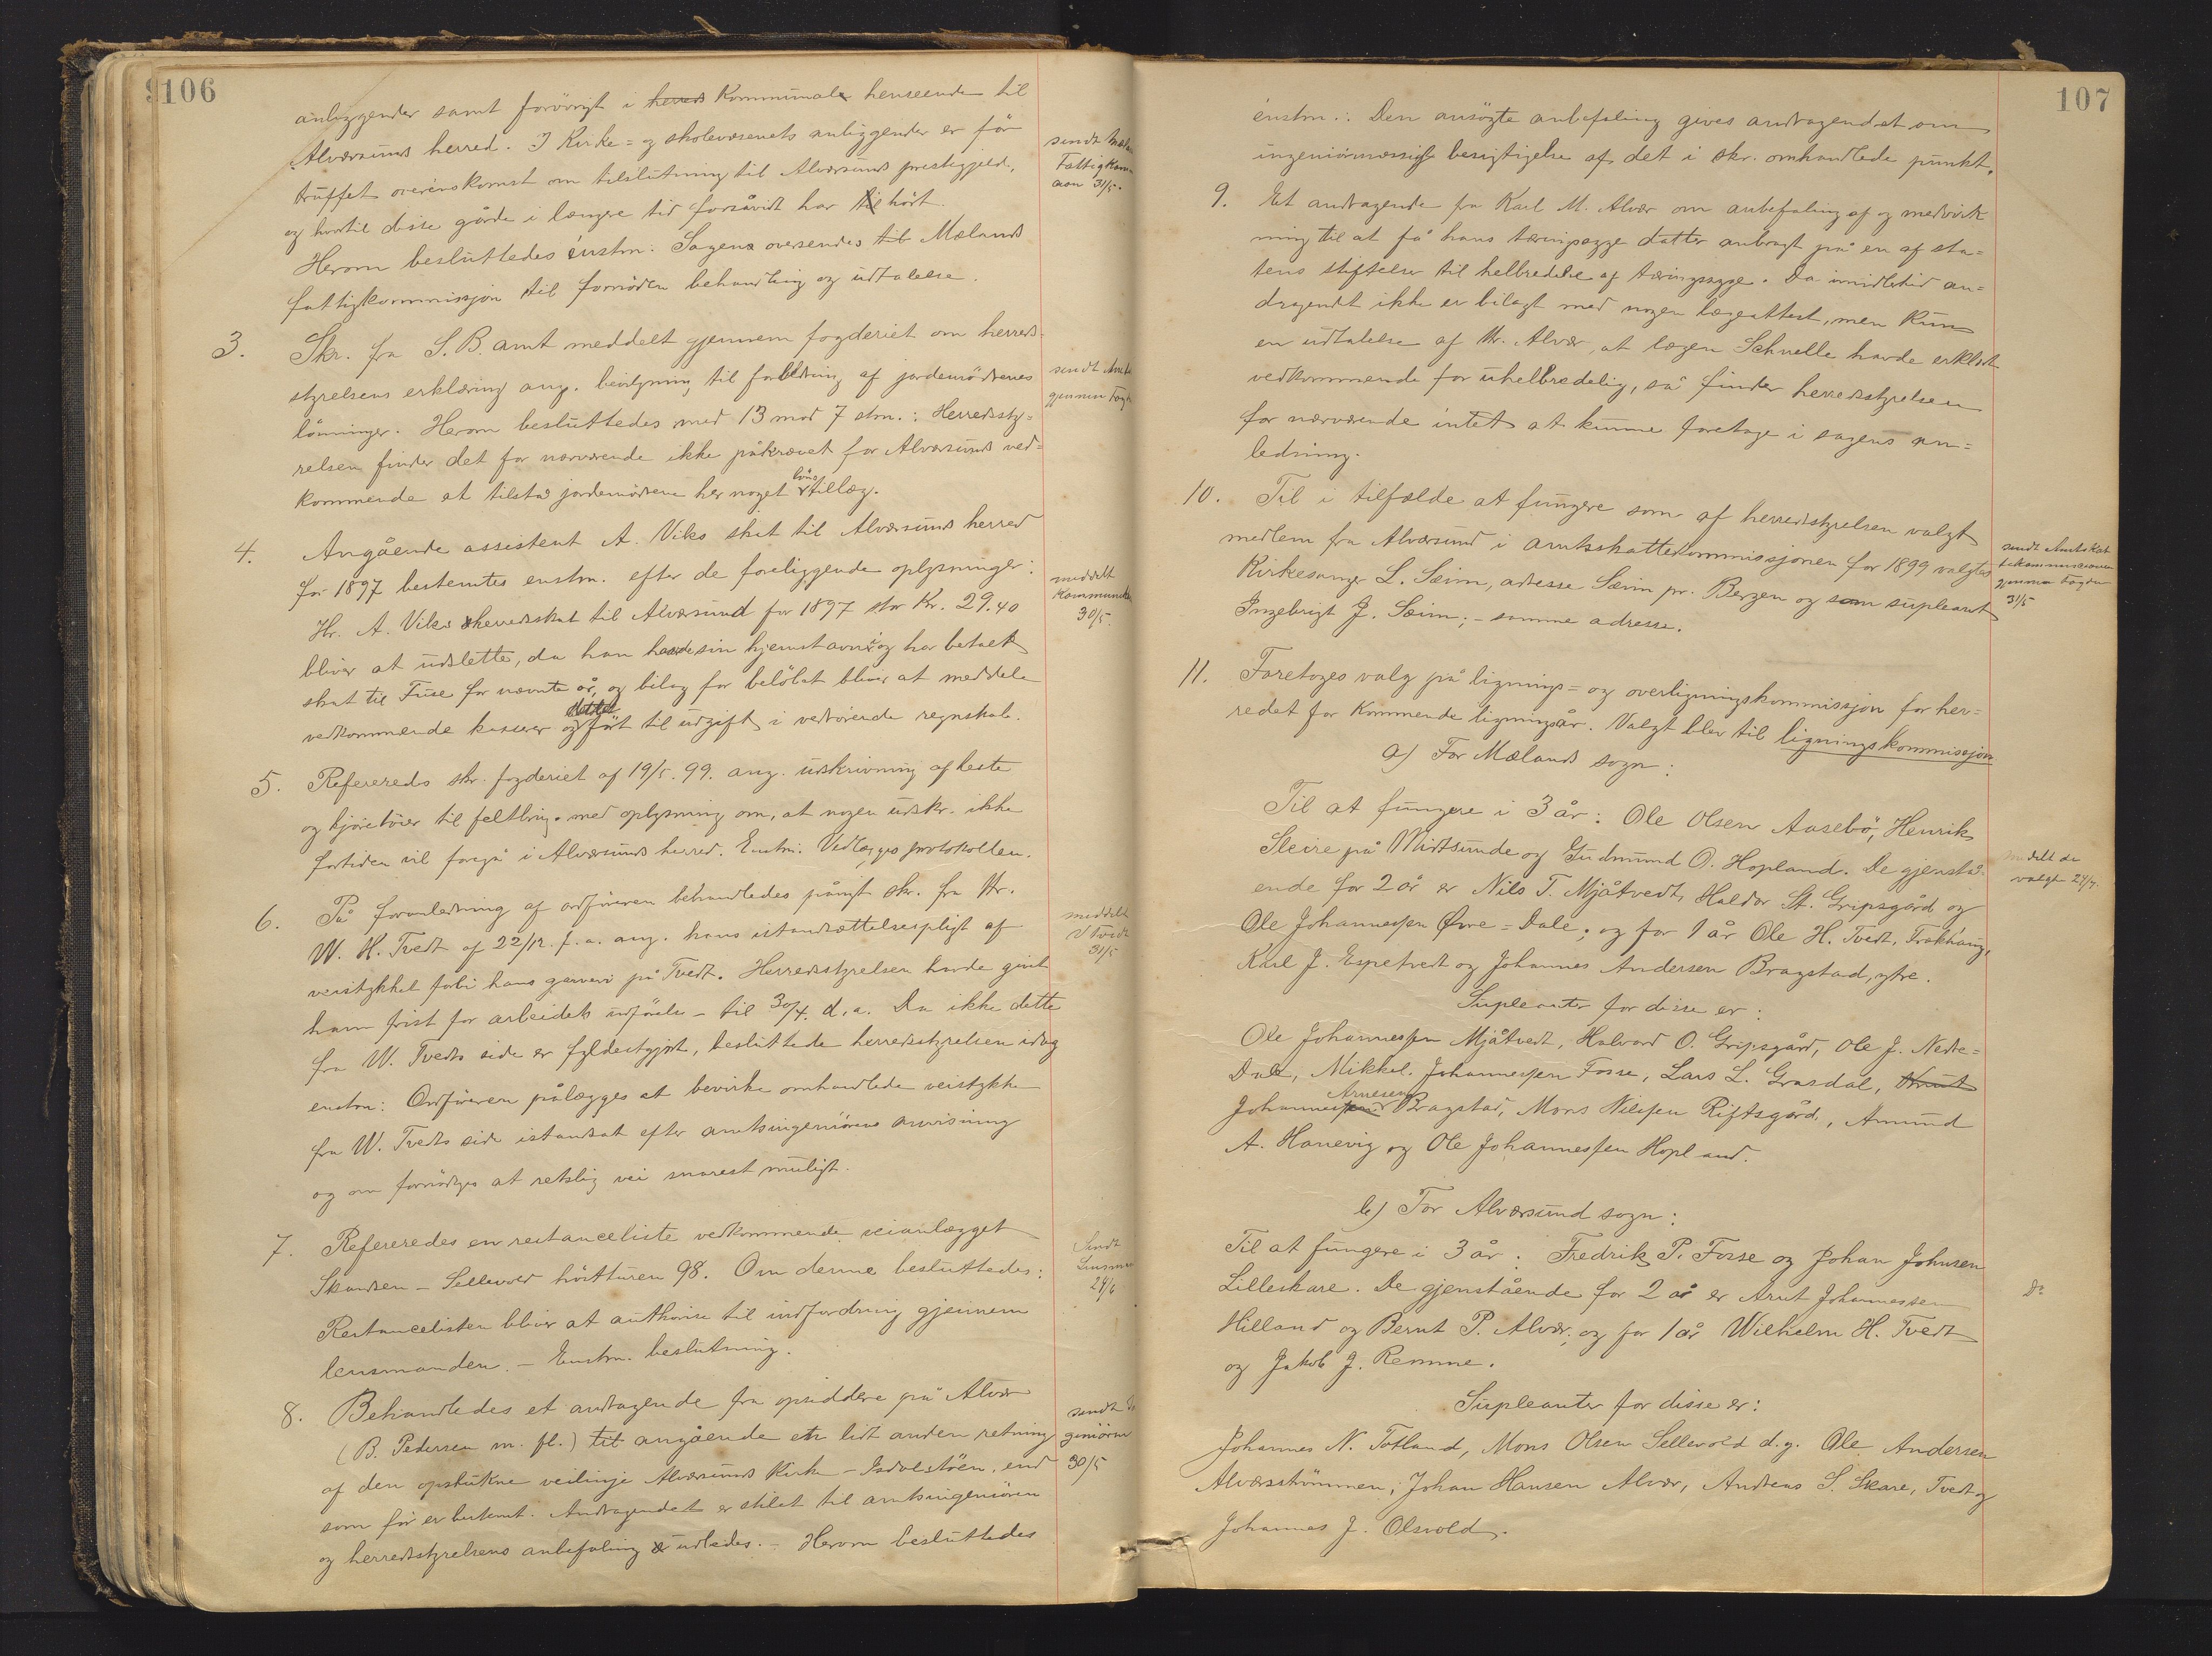 106
anliggender samt forövrigt i herreds kommunale henseende til
Alværsunds herred. I Kirke= og skolevæsenets anliggender er før
truffet overénskomst om tilslutning til Alværsunds prestegjeld,
og hvortil disse gårde i længere tid forsåvidt har til hört.
Herom besluttedes énstm. Sagens oversendes til Mælands
fattigkommissjon til fornöden behandling og udtalelse.
sendt Mæl
Fattigkom
aon 31/5.
3. Skr. fra S. B. amt meddelt gjennem fogderiet om herreds-
styrelsens erklæring ang. bevilgning til forbedring af jordemödrenes
lönninger. Herom besluttedes med 13 mod 7 stm.: Herredssty=
relsen finder det for nærværende ikke påkrævet for Alværsunds ved=
kommende at tilstå jordemödrene her noget löns tillæg.
sendt Amtet
gjennem Fogd
4. Angående assistent A. Viks skat til Alværsunds herred
for 1897 bestemtes enstm. efter de foreliggende oplysninger:
Hr. A. Viks herredsskat til Alværsund for 1897 stor Kr. 29.40
bliver at udslette, da han havde sin hjemstavn i og har betalt
skat til Fuse for nævnte år, og bilag for belöbet bliver at meddele
vedkommende kasserer og fört til udgift i vedrörende regnskab.
meddelt
Kommunek
30/5.
5. Refereredes skr. fogderiet af 19/5. 99. ang. udskrivning af heste
og kjöretöier til feltbrug. med oplysning om, at nogen udskr. ikke
fortiden vil foregå i Alværsunds herred. Enstm. Vedlægges protokollen.
6. På foranledning af ordföreren behandledes påny skr. fra Hr.
W. H. Tvedt af 22/12. f. a. ang. hans istandsættelsespligt af
veistykket forbi hans garveri på Tvedt. Herredsstyrelsen havde givet
ham frist for arbeidets udförelse – til 30/4. d. a. Da ikke dette
fra W. Tvedts side er fyldestgjort, besluttede herredsstyrelsen idag
enstm: Ordföreren pålægges at bevirke omhandlede veistykke
fra W. Tvedts side istandsat efter amtsingeniörens anvisning
og om fornödiges at retslig vei snarest muligt.
meddelt
V Tvedt
31/5
7. Refereredes en restanceliste vedkommende veianlægget
Skandsen – Sellevold höstturen 98. Om denne besluttedes:
Restancelisten bliver at authorisere til indfordring gjennem
lensmanden. – Enstm. beslutning.
Sendt
Lensman
24/6
8. Behandledes et andragende fra opsiddere på Alvær
(B. Pedersen m. fl.) til angående en lidt anden retning
af den opstukne veilinje Alværsunds Kirke – Isdalstöen, end
som för er bestemt. Andragendet er stilet til amtsingeniören
og herredsstyrelsens anbefaling udbedes. – Herom besluttedes
sendt In
geniören
30/5
107
énstm.: Den ansögte anbefaling gives andragendet om
ingeniörmæssig besigtigelse af det i skr. omhandlede punkt.
9. Et andragende fra Karl M. Alvær om anbefaling af og medvirk
ning til at få hans tæringssyge datter anbragt på en af sta=
tens stiftelser til helbredelse af tæringssyge. Da imidlertid an=
dragendet ikke er bilagt med nogen lægeattest, men kun
en udtalelse af Hr. Alvær, at lægen Schnelle havde erklært
vedkommende for uhelbredelig, så finder herredsstyrelsen
for nærværende intet at kunne foretage i sagens an=
ledning.
10. Til i tilfælde at fungere som af herredsstyrelsen valgt
medlem fra Alværsund i amtsskattekommissjonen for 1899 valgtes
Kirkesanger L. Sæim, adresse Sæim pr. Bergen og som supleant
Ingebrigt J. Sæim; – samme adresse.
sendt Amtskat
tekommissionen
gjennem Fogden
31/5
11. Foretoges valg på lignings= og overligningskommissjon for her=
redet for kommende ligningsår. Valgt blev til ligningskommissjon
a) For Mælands sogn:
Til at fungere i 3 år: Ole Olsen Aasebö, Henrik
Sleire på Midtsunde og Gudmund O. Hopland. De gjenstå=
ende for 2 år er Nils T. Mjåtvedt, Haldor St. Gripsgård og
Ole Johannessen Övre=Dale; og for 1 år Ole H. Tvedt, Trokhaug,
Karl J. Espetvedt og Johannes Andersen Bragstad, ytre.
meddelt de
valgte 24/7.
Supleanter for disse er:
Ole Johannessen Mjåtvedt, Halvard O. Gripsgård, Ole J. Nedre=
Dale, Mikkel Johannessen Fosse, Lars L. Grasdal, Knut
Johannessen Arnesen Bragstad, Mons Nilssen Riftsgård, Amund
A. Hanevig og Ole Johannessen Hopland.
b) For Alværsund sogn:
Til at fungere i 3 år: Fredrik P. Fosse og Johan Johnsen
Lilleskare. De gjenstående for 2 år er Arnt Johannessen
Hilland og Bernt P. Alvær, og for 1 år Wilhelm H. Tvedt
og Jakob J. Remme.
Do
Supleanter for disse er:
Johannes N. Totland, Mons Olsen Sellevold d.y. Ole Andersen
Alværströmmen, Johan Hansen Alvær, Andreas S. Skare, Tvedt og
Johannes J. Olsvold.